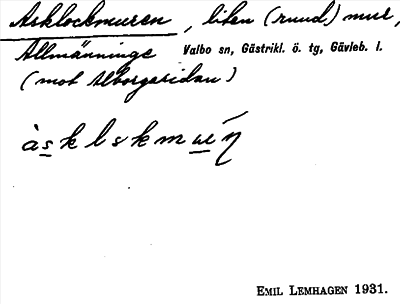 Asklockmuren, liten (rund) mur,
Allmänninge Valbo sn, Gästrikl. ö. tg, Gävleb. l.
(mot Alborgasidan)
àsklskmuŕen
EMIL LEMHAGEN 1931.